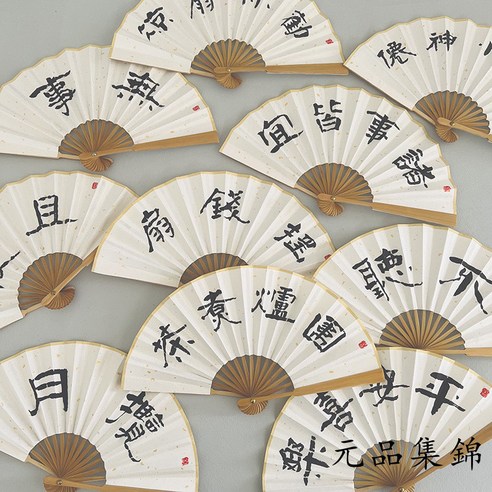 無事
神僊
諸事皆宜
且
搖錢扇
不聽
圍爐煮茶
攬月
平安喜樂
元品集錦